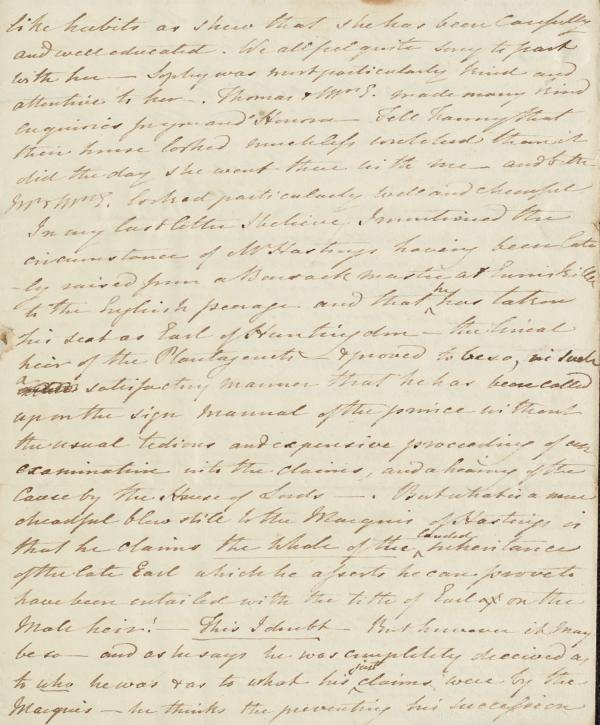 like habits as shew that she has been carefully
and well educated. We all feel quite sorry to part
with her — Sophy was most particularly kind and
attentive to her —. Thomas & Mrs E. made many kind
enquiries for you and Honora — Tell Fanny that
their house looked much less wretched than it
did the day she went there with me — and both
Mr & Mrs E. looked particularly well and chearful
In my last letter I believe I mentioned the
circumstance of Mr Hastings having been late
-ly raised from a Barrack master at Enniskillen
to the English peerage and that he has taken
his seat as Earl of Huntingdon — the lineal
heir of the Plantagenets — & proved to be so, in such
a satisfactory manner that he has been called
upon the sign manual of the prince without
the usual tedious and expensive proceeding of an
examination into the claims, and a hearing of the
Cause by the House of Lords —. But what is a more
dreadful blow still to the Marquis of Hastings is
that he claims the whole of the landed inheritance
of the late Earl which he asserts he can prove to
have been entailed with the title of Earl on the
Male heir! — This I doubt — But however it may
be so — and as he says he was completely deceived as
to who he was & as to what his just claims were by the
Marquis — he thinks the preventing his succession